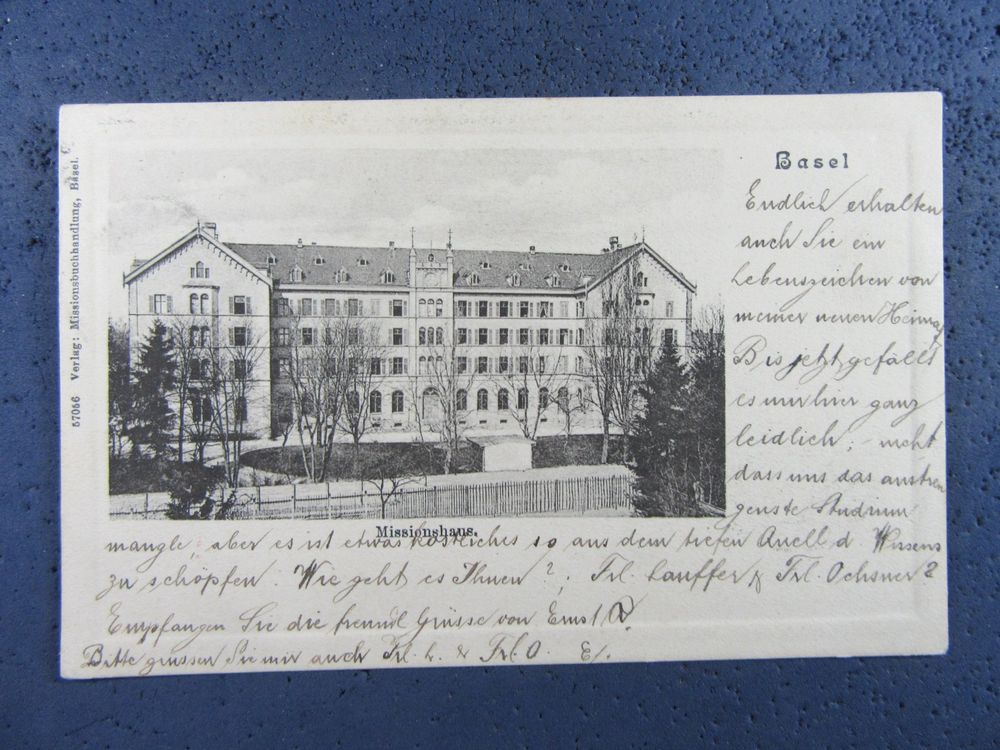 Basel
57056 Verlag: Missionsbuchhandlung, Basel.
Missionshaus.
Endlich erhalten
auch Sie ein
Lebenszeichen von
meiner neuen Heimat
Bis jetzt gefällt
es mir hier ganz
leidlich; nicht
dass uns das anstren
genste Studium
mangle, aber es ist etwas köstliches so aus dem tiefen Quell d Wissens
zu schöpfen. Wie geht es Ihnen?, Frl. Lauffer & Frl. Ochsner?
Empfangen Sie die freundl Grüsse von Ernst
Bitte grüssen Sie mir auch Frl. L. & Frl. O. E/.